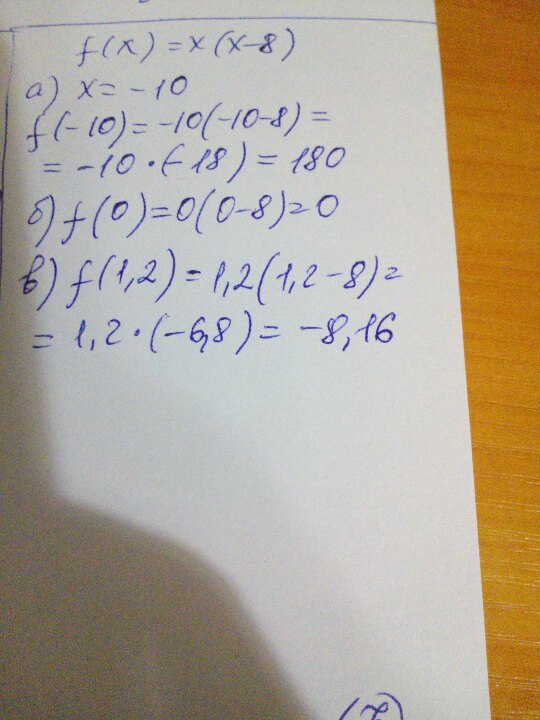 f(x) = x(x-8)
а) x = -10
f(-10) = -10(-10-8) =
= -10 · (-18) = 180
б) f(0) = 0(0-8) = 0
в) f(1,2) = 1,2(1,2-8) =
= 1,2 · (-6,8) = -8,16